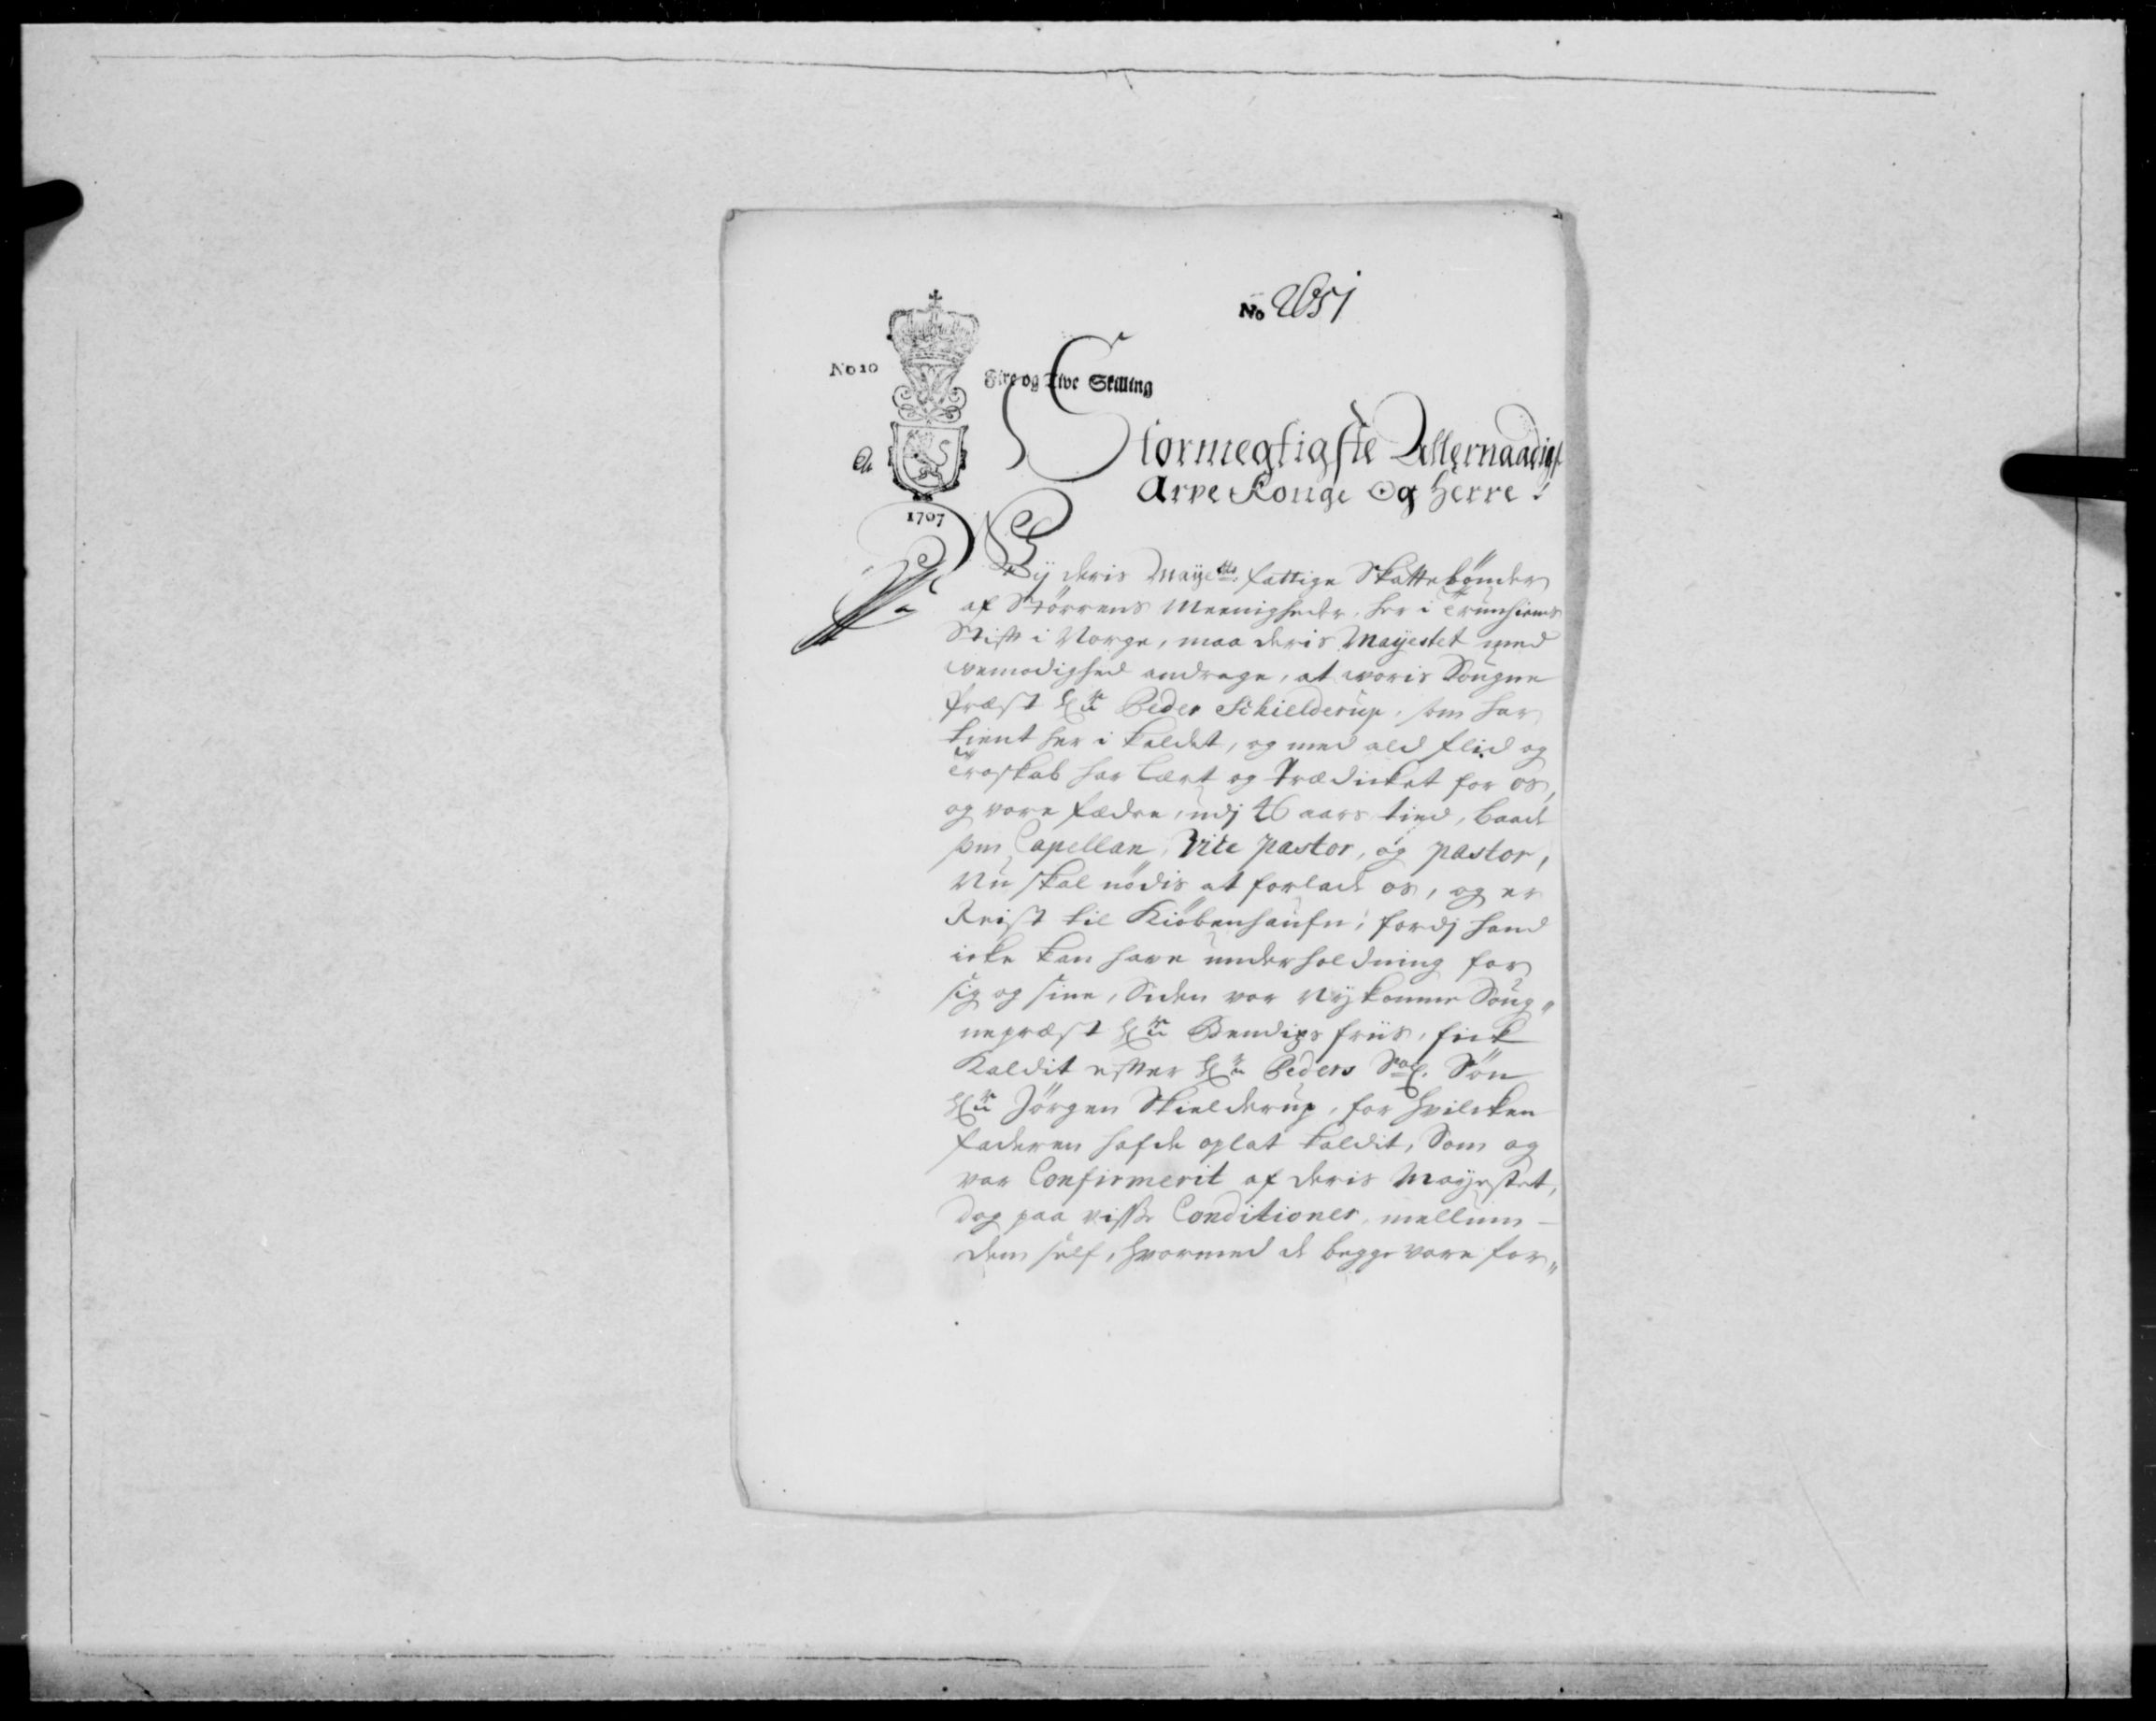 No 2651
No 10
Fire og Tive Skilling
1707
Stormegtigste Allernaadigst
Arve Konge Og Herre!
Vij deris Mayetts fattige Skattebønder
af Størrens Meenigheder, her i Trunhiems
Stift i Norge, maa deris Mayestet med
vemodighed andrage, at woris Sougne
præst Hr Peder Schielderup, som har
tient her i kaldet, og med ald flid og
troskab har lært og Prædicket for os,
og vore fædre, udj 46 aars tied, baade
som Capellan, Vice pastor, og pastor,
Nu skal nødis at forlade os, og er
Reist til Kiøbenhaufn, fordj hand
icke kan have underholdning for
sig og sine, Siden vor Nykomne Soug„
nepræst Hr Bendix friis, fick
Kaldit efter Hr Peders Sal. Søn
Hr Jörgen Skielderup, for hvilcken
faderen hafde oplat kaldit, Som og
var Confirmerit af deris Mayestet,
dog paa visse Conditioner, mellum
dem self, hvormed de begge vare for„